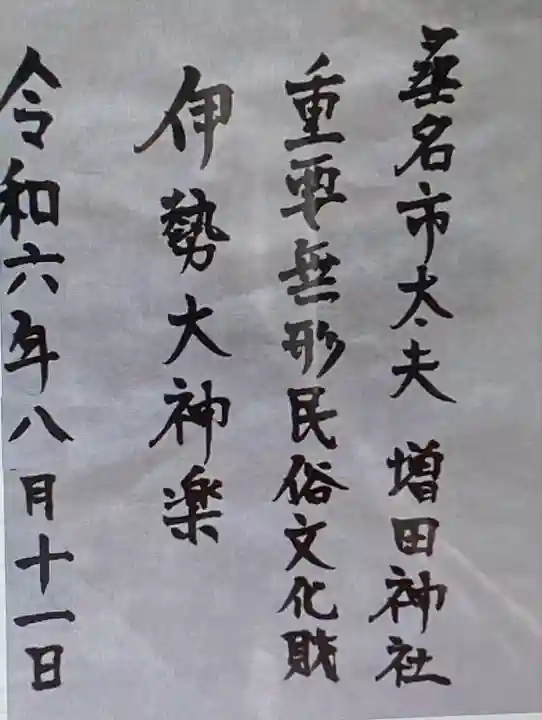 桑名市太夫 増田神社
重要無形民俗文化財
伊勢大神楽
令和六年八月十一日